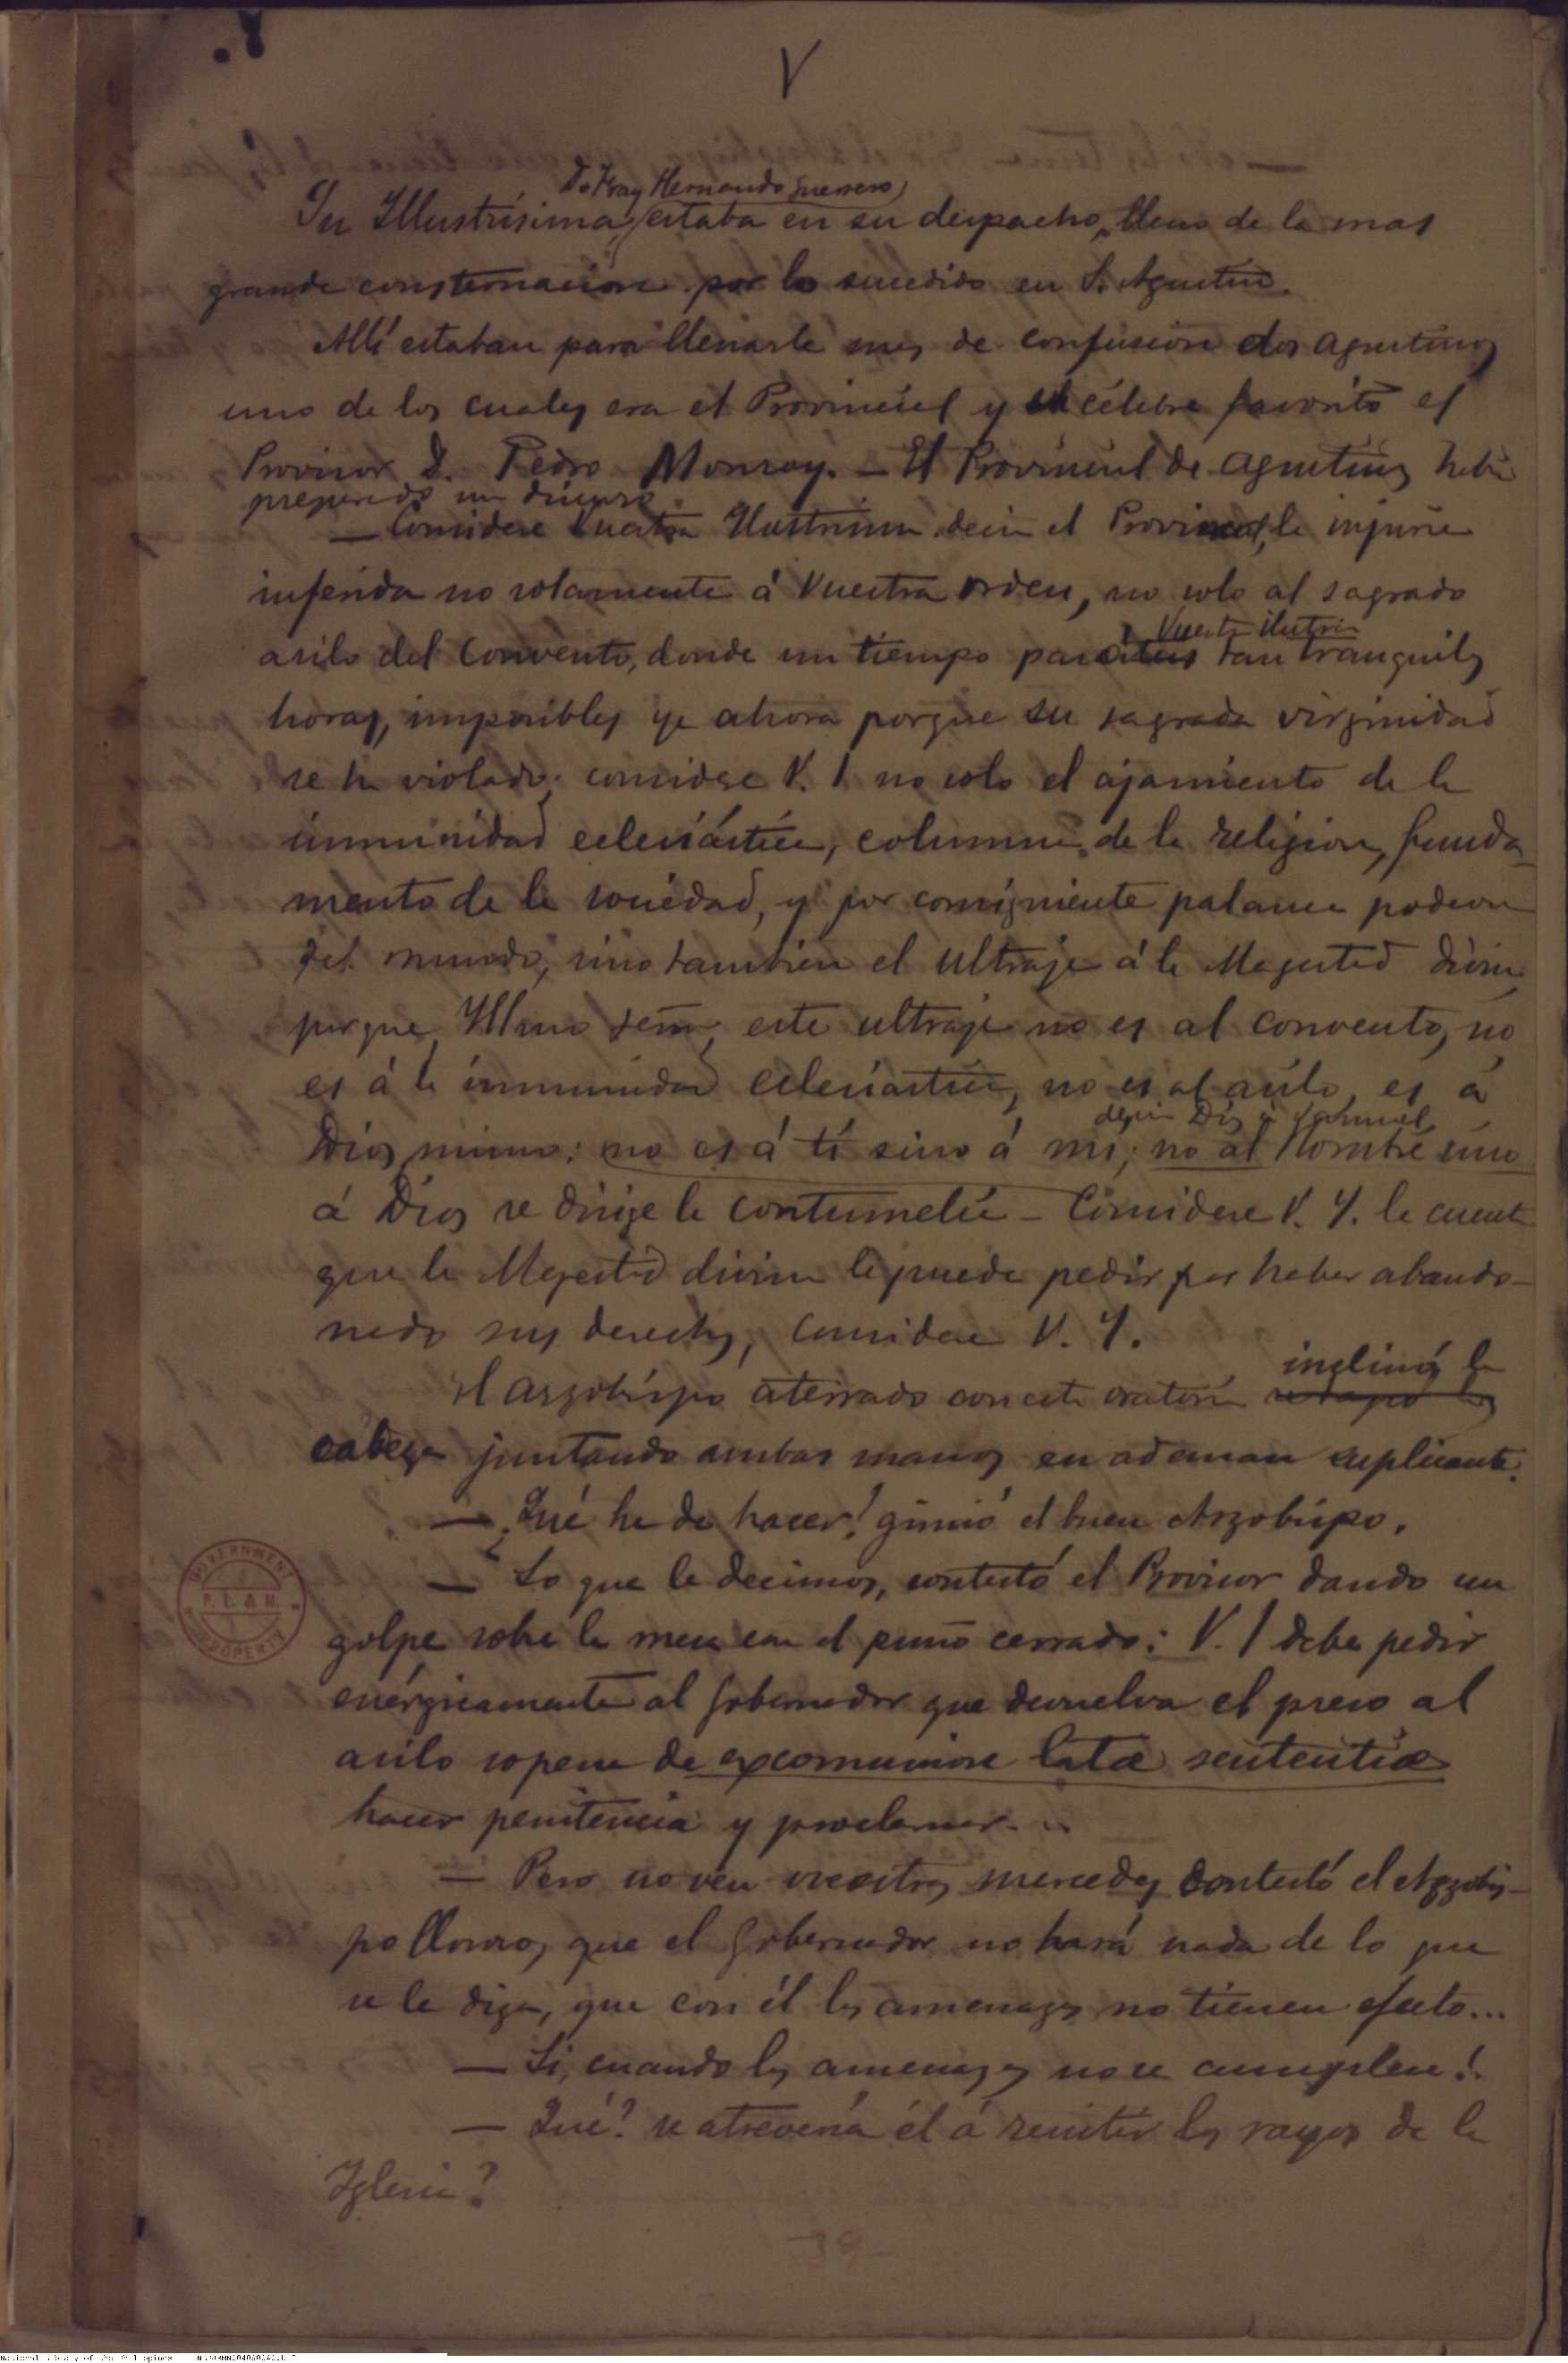 V
D. Fray Hernando Guerrero,
Su Illustrísima, estaba en su despacho, lleno de la mas
grande consternacion por lo sucedido en S. Agustin.
Allí estaban para llenarle mas de confusion dos agustinos
uno de los cuales era el Provincial y el célebre favorito el
Provisor D. Pedro Monroy. — El Provincial de Agustinos habia
preparado un discurso.
— Considere Vuestra Ilustrisima decia el Provincial, la injuria
inferida no solamente á Vuestra orden, no solo al sagrado
Vuestra Ilustris
asilo del Convento, donde un tiempo tan tranquilas
horas, imposibles ya ahora porque su sagrada virginidad
se ha violado; considere V. I. no solo el ajamiento de la
inmunidad eclesiástica, columna de la religion, funda-
mento de la sociedad, y por consiguiente palanca poderosa
del mundo, sino tambien el ultraje á la Magestad divina
porque Illmo Señor, este ultraje no es al convento, no
es á la inmunidad eclesiastica, no es al asilo, es á
decia Dios á Samuel
Dios mismo: no es á tí sino á mi; no al Hombre sino
á Dios se dirige la contumelia — Considere V. I. la cuenta
que la Magestad divina le puede pedir por haber abando-
nado sus derechos, Considere V. I.
inclinó la
El arzobispo aterrado con esta oratoria
cabeza juntando ambas manos en ademan suplicante.
— ¿Qué he de hacer! gimió el buen Arzobispo.
— Lo que le decimos, contestó el Provisor dando un
golpe sobre la mesa con el puño cerrado: V. I debe pedir
enérgicamente al Gobernador que devuelva el preso al
asilo sopena de excomunion latæ sententiæ
hacer penitencia y proclamar...
— Pero no ven vuestras mercedes contestó el Arzobis-
po lloroso, que el Gobernador no hará nada de lo que
se le diga, que con él las amenazas no tienen efecto...
— Si, cuando las amenazas no se cumplen!
— Qué? se atreveria él á resistir los rayos de la
Iglesia?
GOVERNMENT
P. L. & M.
PROPERTY
National Library of the Philippines